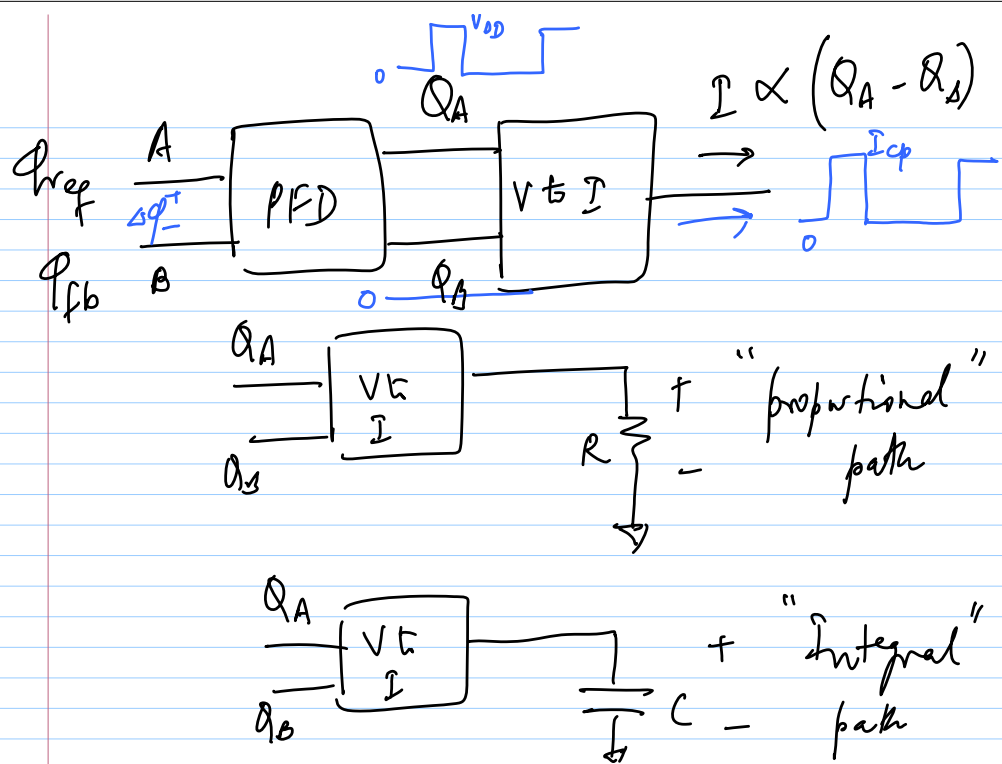 V_DD
0
Q_A
I ∝ (Q_A - Q_B)
φ_ref
A
Δφ
+
-
PFD
V to I
I_cp
0
φ_fb
B
Q_B
0
Q_A
V to
I
Q_B
R
+
-
"proportional"
path
Q_A
V to
I
Q_B
C
+
-
"Integral"
path